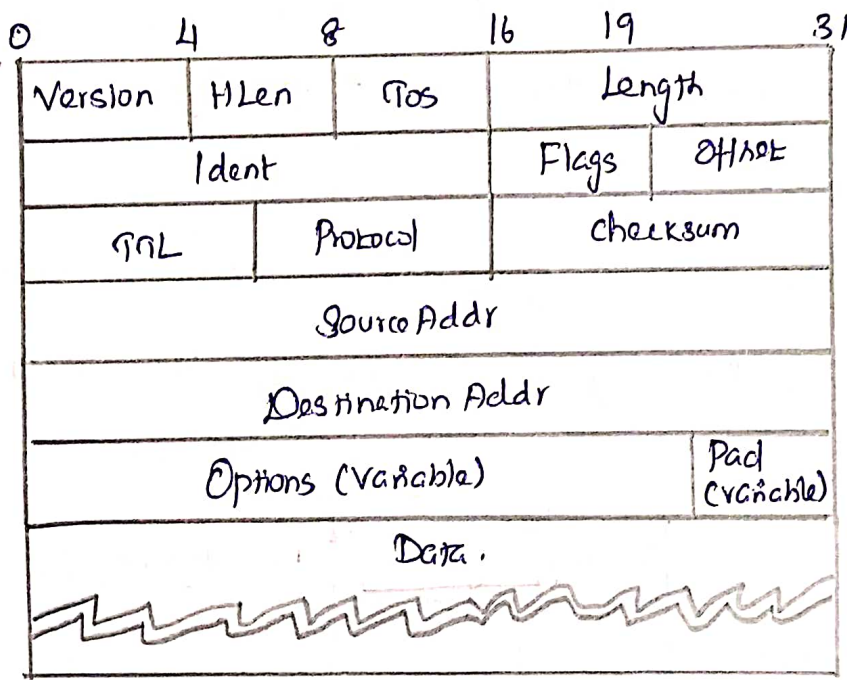 0 4 8 16 19 31
Version HLen TOS Length
Ident Flags Offset
TTL Protocol Checksum
Source Addr
Destination Addr
Options (variable) Pad
(variable)
Data.